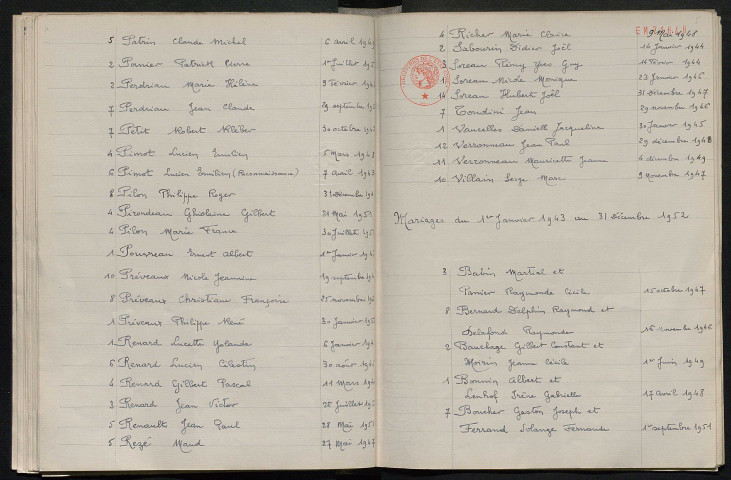 5 Patrin Claude Michel 6 avril 194
2 Panier Patrick Pierre 1er Juillet 195
2 Perdrian Marie Hélène 9 Février 194
7 Perdrian Jean Claude 29 septembre 19
7 Petit Robert Kléber 30 octobre 194
4 Pimot Lucien Emilien 5 Mars 194
6 Pimot Lucien Emilien (Reconnaissance) 7 avril 1943
8 Pilon Philippe Roger 31 Décembre 19
4 Pirondeau Ghislaine Gilbert 31 Mai 195
4 Pilon Marie France 30 Juillet 195
1 Pousseau Ernest Albert 1er Janvier 19
10 Préveaux Nicole Jeannine 19 septembre 19
8 Préveaux Christian Françoise 25 novembre 19
1 Préveaux Philippe René 30 Janvier 195
1 Renard Lucette Yolande 6 Janvier 19
6 Renard Lucien Célestin 30 août 19
4 Renard Gilbert Pascal 11 Mars 19
3 Renard Jean Victor 25 Juillet 19
5 Renault Jean Paul 28 Mai 195
5 Rezé Maud 27 Mai 1947
4 Richer Marie Claire 9 Mai 1948
2 Sabourin Didier Joël 14 Janvier 1944
3 Soreau Rémy Yves Guy 11 Février 1944
1 Soreau Nicole Monique 23 Janvier 1946
14 Soreau Hubert Joël 31 Décembre 1947
7 Tondini Jean 29 novembre 1946
1 Vancelles Danielle Jacqueline 30 Janvier 1945
12 Verronneau Jean Paul 29 décembre 1948
11 Verronneau Mauricette Jeanne 4 décembre 1949
10 Villain Serge Marc 9 novembre 1947
Mariages du 1er Janvier 1943 au 31 Décembre 1952
3 Babin Martial et
Panier Raymonde Cécile 15 octobre 1947
8 Bernard Delphin Raymond et
Delafond Raymonde 16 novembre 1946
2 Bauchage Gilbert Constant et
Moisin Jeanne Cécile 1er Juin 1949
1 Bonnin Albert et
Lenhof Irène Gabrielle 17 avril 1948
7 Boucher Gaston Joseph et
Ferrand Solange Fernande 1er septembre 1951